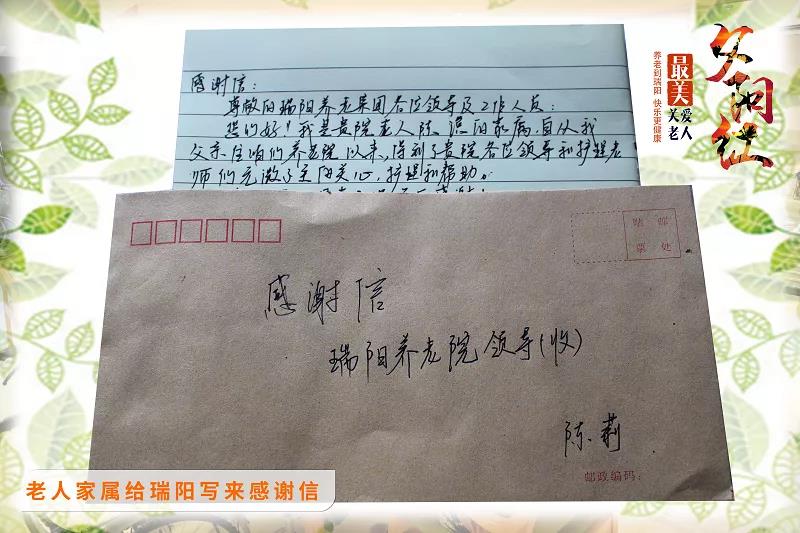 感谢信：
尊敬的瑞阳养老集团各位领导及工作人员：
您们好！我是贵院老人陈 阳家属，自从我
父亲住咱们养老院以来，得到了贵院各位领导和护理老
师们无微了至阳关心，护理和帮助。
感谢！
贴邮
票处
感谢信
瑞阳养老院领导(收)
陈莉
邮政编码：
夕阳红
最美
关爱
老人
养老到瑞阳 快乐更健康
老人家属给瑞阳写来感谢信